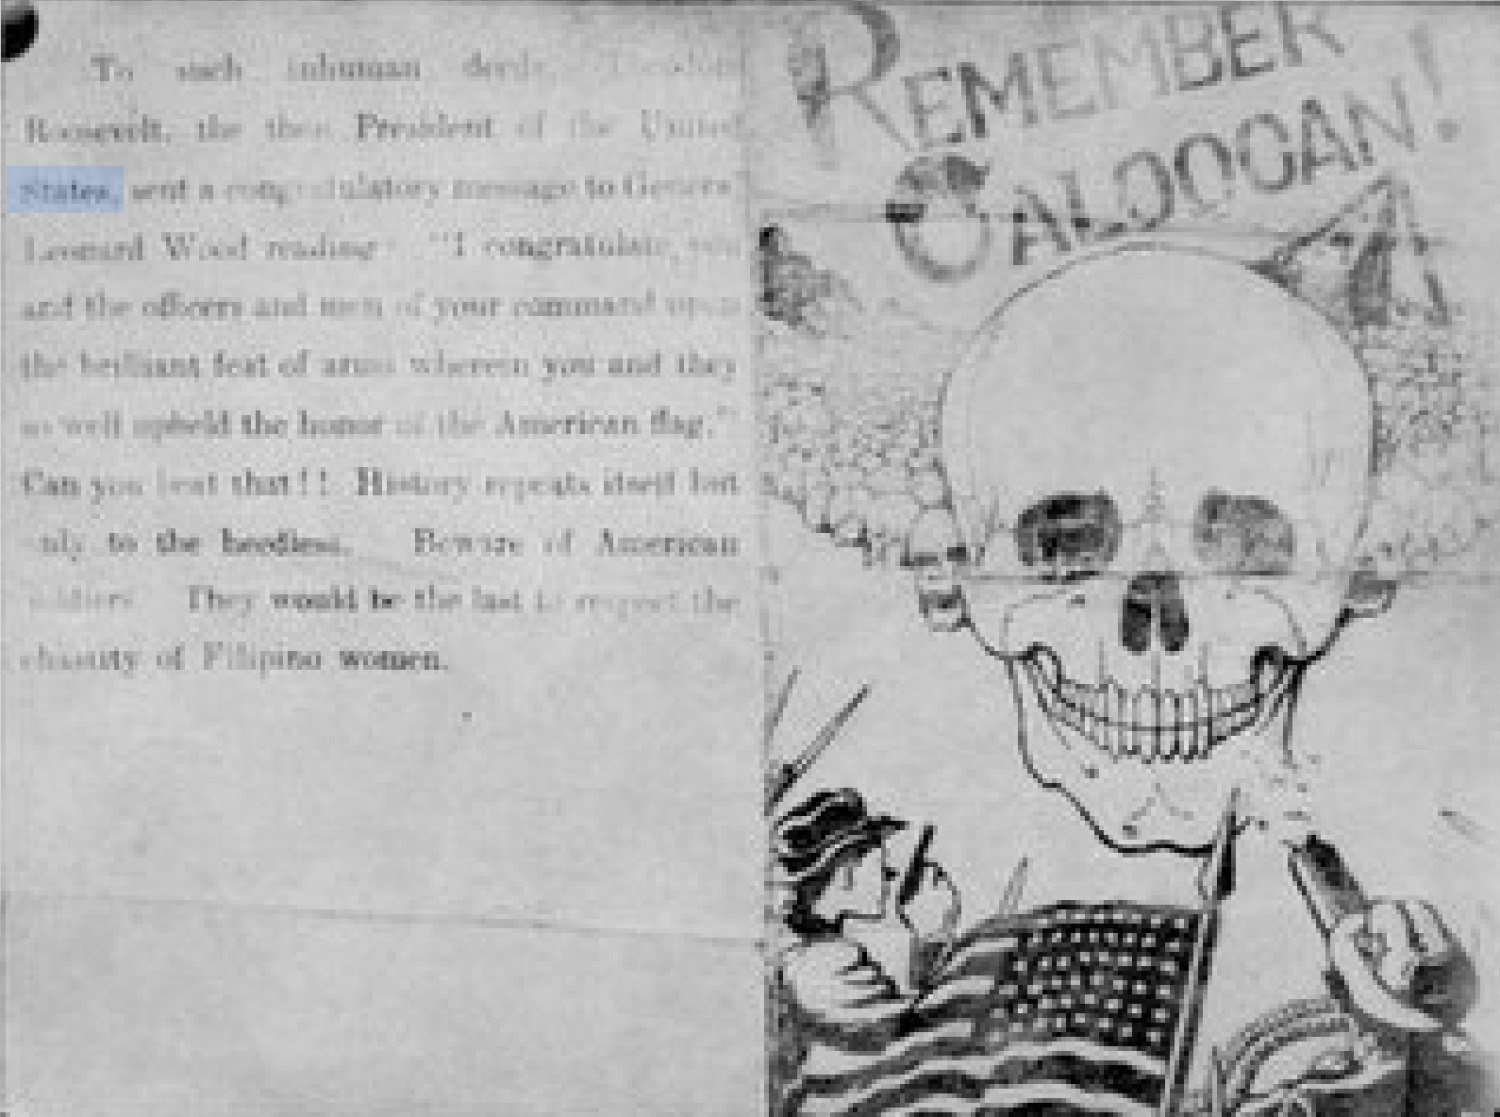 To such inhuman deeds, Theodore
Roosevelt, the then President of the United
States, sent a congratulatory message to General
Leonard Wood reading: "I congratulate you
and the officers and men of your command upon
the brilliant feat of arms wherein you and they
so well upheld the honor of the American flag."
Can you beat that!! History repeats itself but
only to the heedless. Beware of American
soldiers. They would be the last to respect the
chastity of Filipino women.
REMEMBER
CALOOCAN!